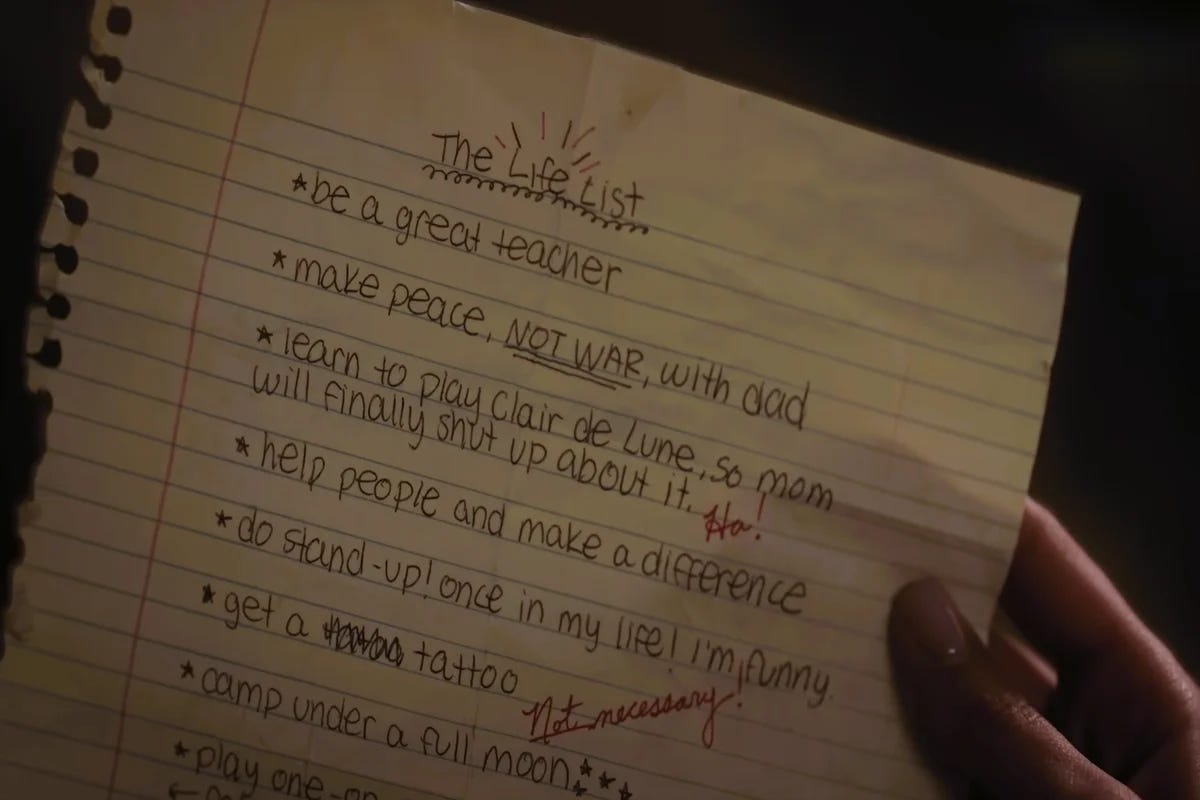 The Life List
*be a great teacher
*make peace, NOT WAR, with dad
*learn to play Clair de Lune, so mom
will finally shut up about it. Ha!
*help people and make a difference
*do stand-up! once in my life! I'm funny.
*get a tattoo
Not necessary!
*camp under a full moon***
*play one-on